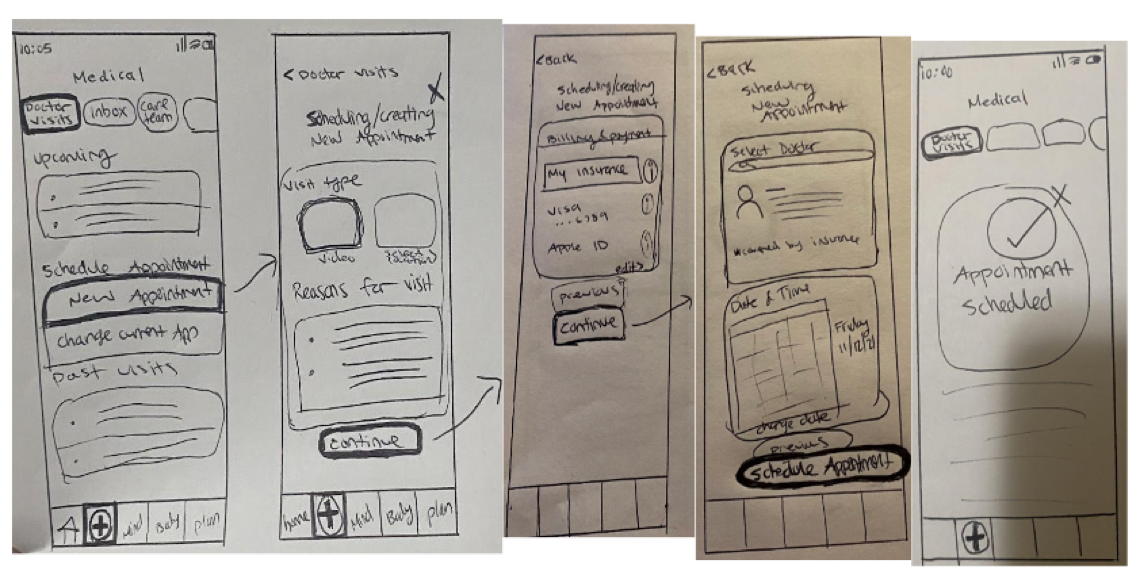 10:05
Medical
Doctor visits
inbox
care team
upcoming
Schedule Appointment
New Appointment
change current App
Past visits
Mind
Body
plan
< Doctor visits
X
Scheduling/creating
New Appointment
Visit type
Video
Reasons for visit
continue
home
Mind
Body
plan
<Back
Scheduling/creating
New Appointment
Billing & payment
My insurance
i
visa
i
...6789
Apple ID
i
edit>
previous
continue
<Back
Scheduling
New
Appointment
Select Doctor
*covered by insurance
Date & Time
Friday
11/12/21
change date
previous
Schedule Appointment
10:40
Medical
Doctor visits
X
Appointment
Scheduled